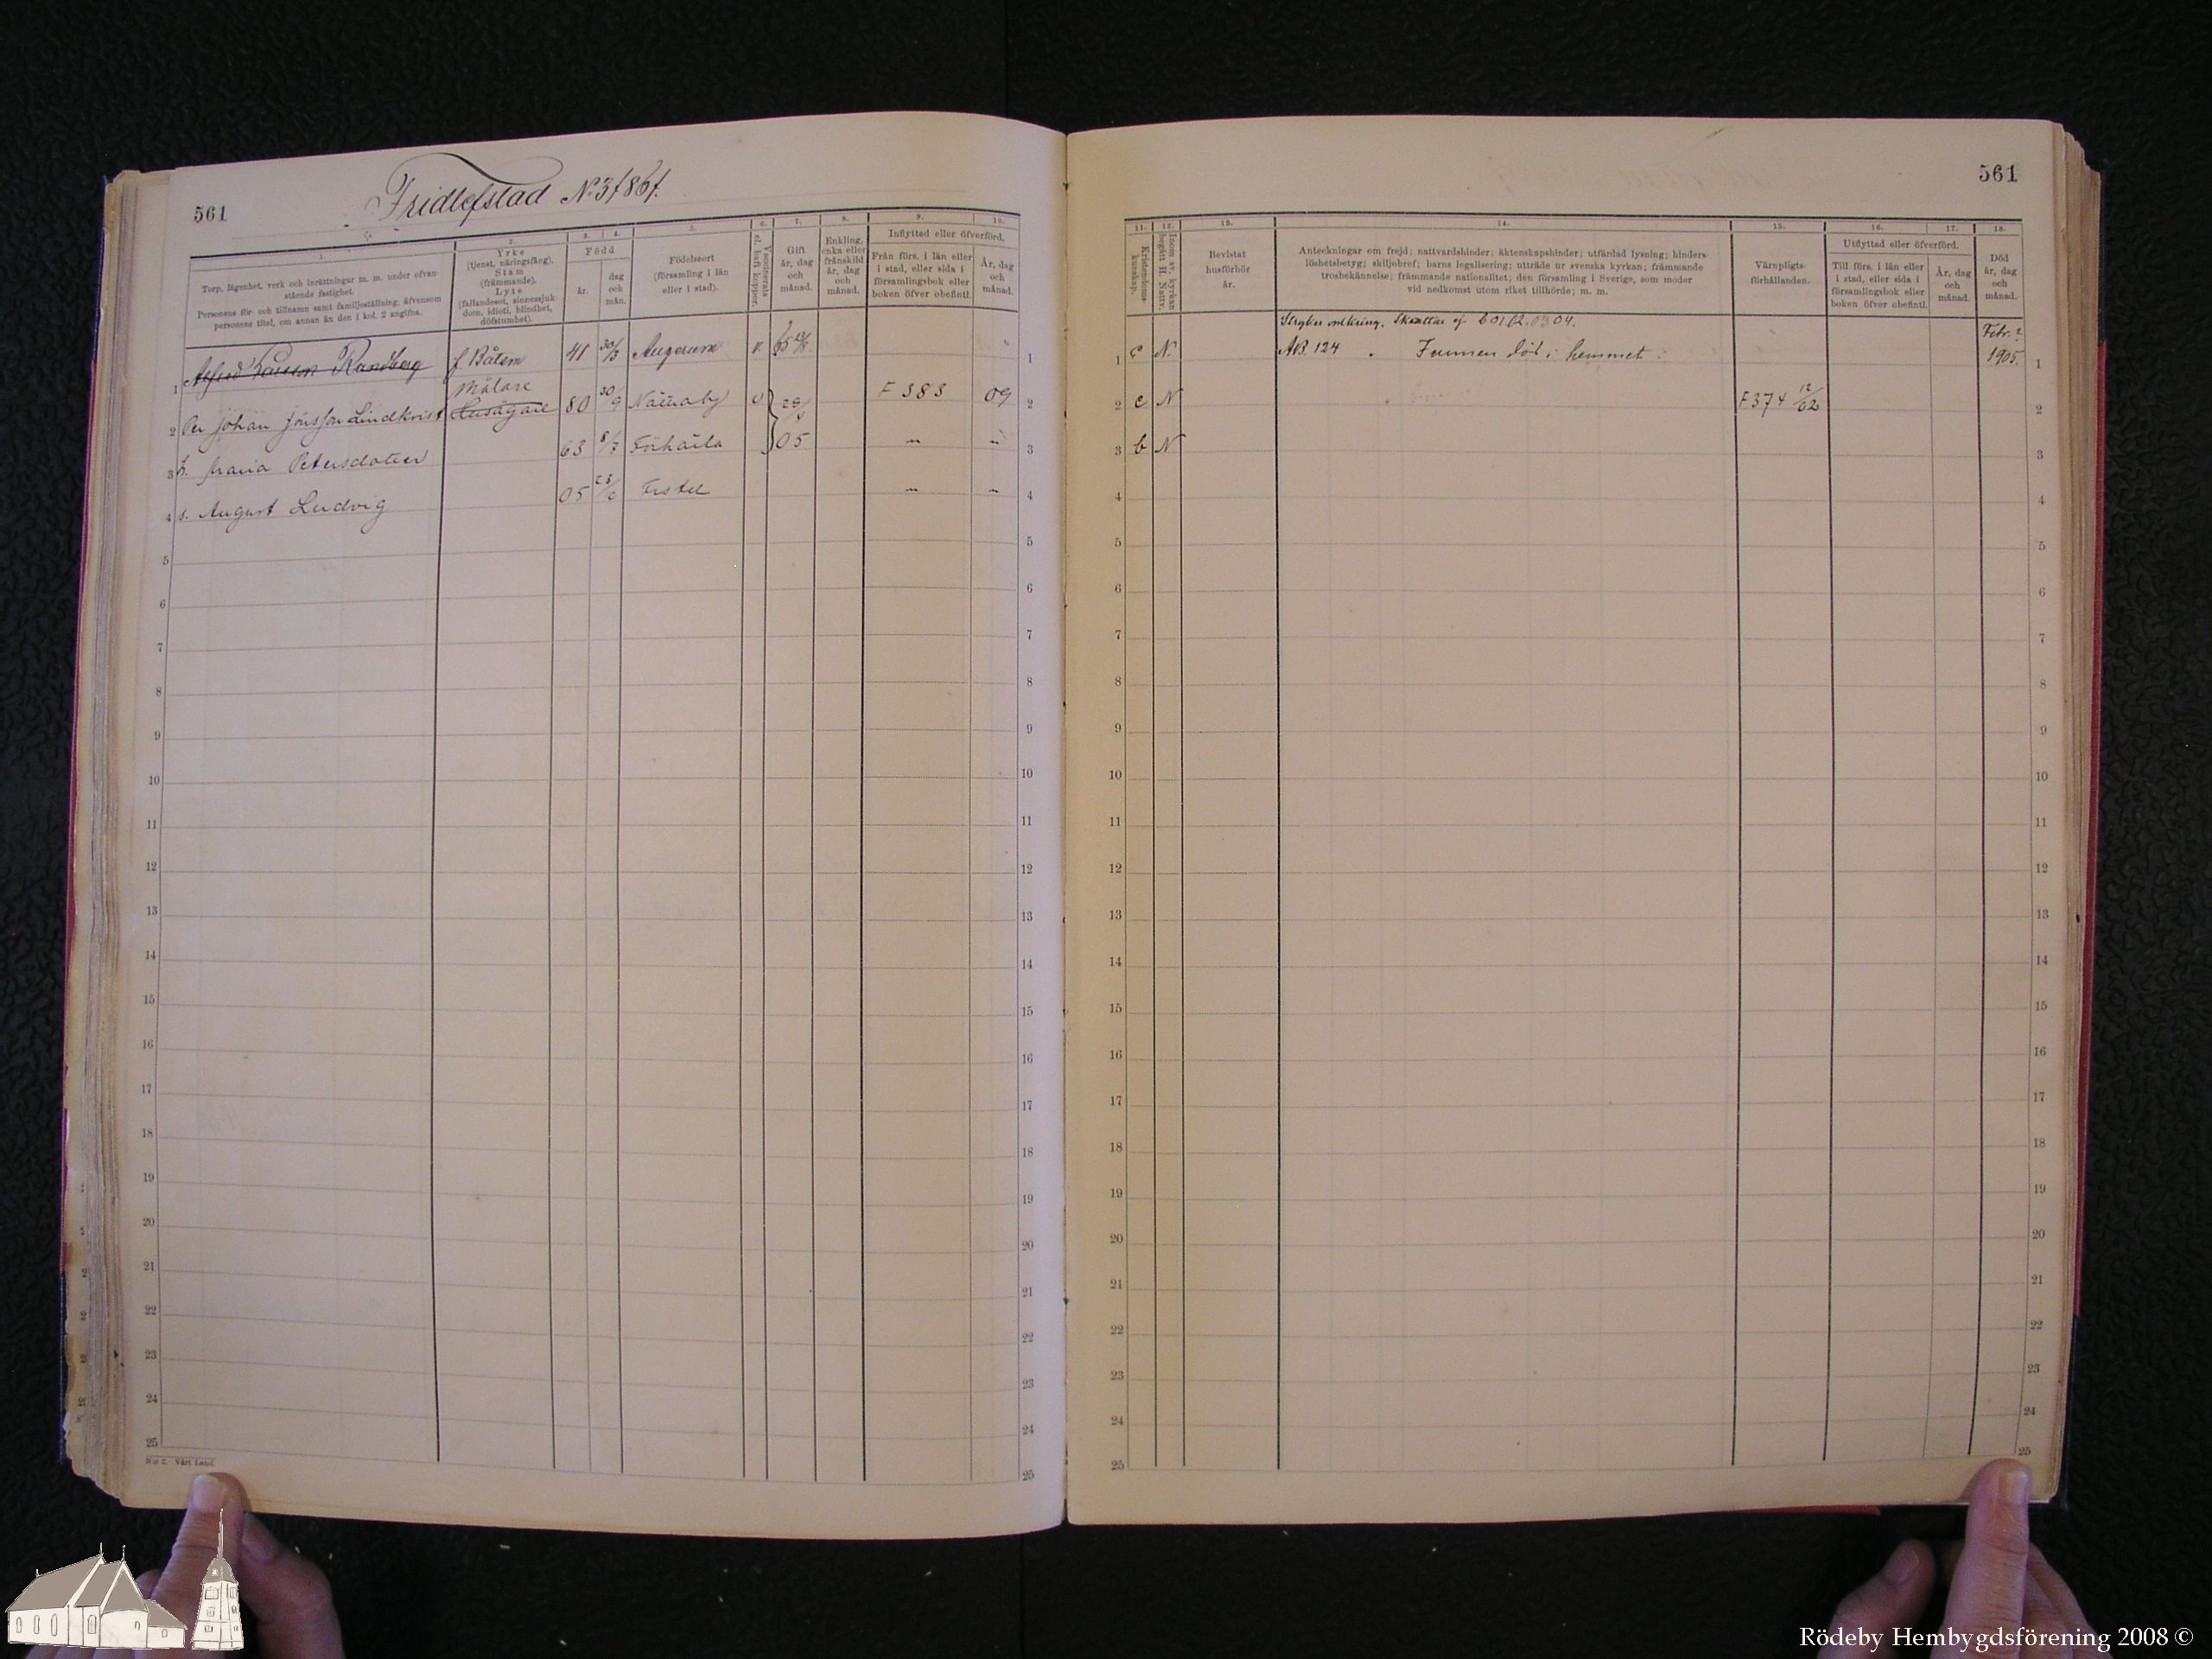 561
Fridlefstad
1. 2. 3. 4. 5. 6. 7. 8. 9. 10.
Torp, lägenhet, verk och inrättningar m. m. under ofvan-
stående fastighet.
Personens för- och tillnamn samt familjeställning, äfvensom
personens titel, om annan än den i kol. 2 angifna.
Yrke
(tjenst, näringsfång).
Stam
(främmande).
Lyte
(fallandesot, sinnessjuk-
dom, idioti, blindhet,
döfstumhet).
Född
år.
dag
och
mån.
Födelseort
(församling i län
eller i stad).
Vaccinerats
el. haft koppor.
Gift
år, dag
och
månad.
Enkling,
enka eller
frånskild
år, dag
och
månad.
Inflyttad eller öfverförd.
Från förs. i län eller
i stad, eller sida i
församlingsbok eller
boken öfver obefintl.
År, dag
och
månad.
1 Alfred Karlsson Randberg f Båtsm 41 30/3 Augerum v 1
Målare
2 Per Johan Jönsson Lindkvist Husägare 80 30/9 Nättraby v F 383 09 2
3 h. Maria Petersdotter 63 8/7 05 3
4 s. August Ludvig 05 4
5 5
6 6
7 7
8 8
9 9
10 10
11 11
12 12
13 13
14 14
15 15
16 16
17 17
18 18
19 19
20 20
21 21
22 22
23 23
24 24
25 25
N:o 2. Vårt Land.
561
11. 12. 13. 14. 15. 16. 17. 18.
Kristendoms-
kunskap.
Inom sv. kyrkan
begått H. Nattv.
Bevistat
husförhör
år.
Anteckningar om frejd; nattvardshinder; äktenskapshinder; utfärdad lysning; hinders-
löshetsbetyg; skiljobref; barns legalisering; utträde ur svenska kyrkan; främmande
trosbekännelse; främmande nationalitet; den församling i Sverige, som moder
vid nedkomst utom riket tillhörde; m. m.
Värnpligts-
förhållanden.
Utflyttad eller öfverförd.
Till förs. i län eller
i stad, eller sida i
församlingsbok eller
boken öfver obefintl.
År, dag
och
månad.
Död
år, dag
och
månad.
Stryker omkring. Skattar ej 01.02.03 04. Febr. ?
1 c N. AB. 124 Funnen död i hemmet. 1905. 1
2 c N F 374 12/02 2
3 b N 3
4 4
5 5
6 6
7 7
8 8
9 9
10 10
11 11
12 12
13 13
14 14
15 15
16 16
17 17
18 18
19 19
20 20
21 21
22 22
23 23
24 24
25 25
Rödeby Hembygdsförening 2008 ©